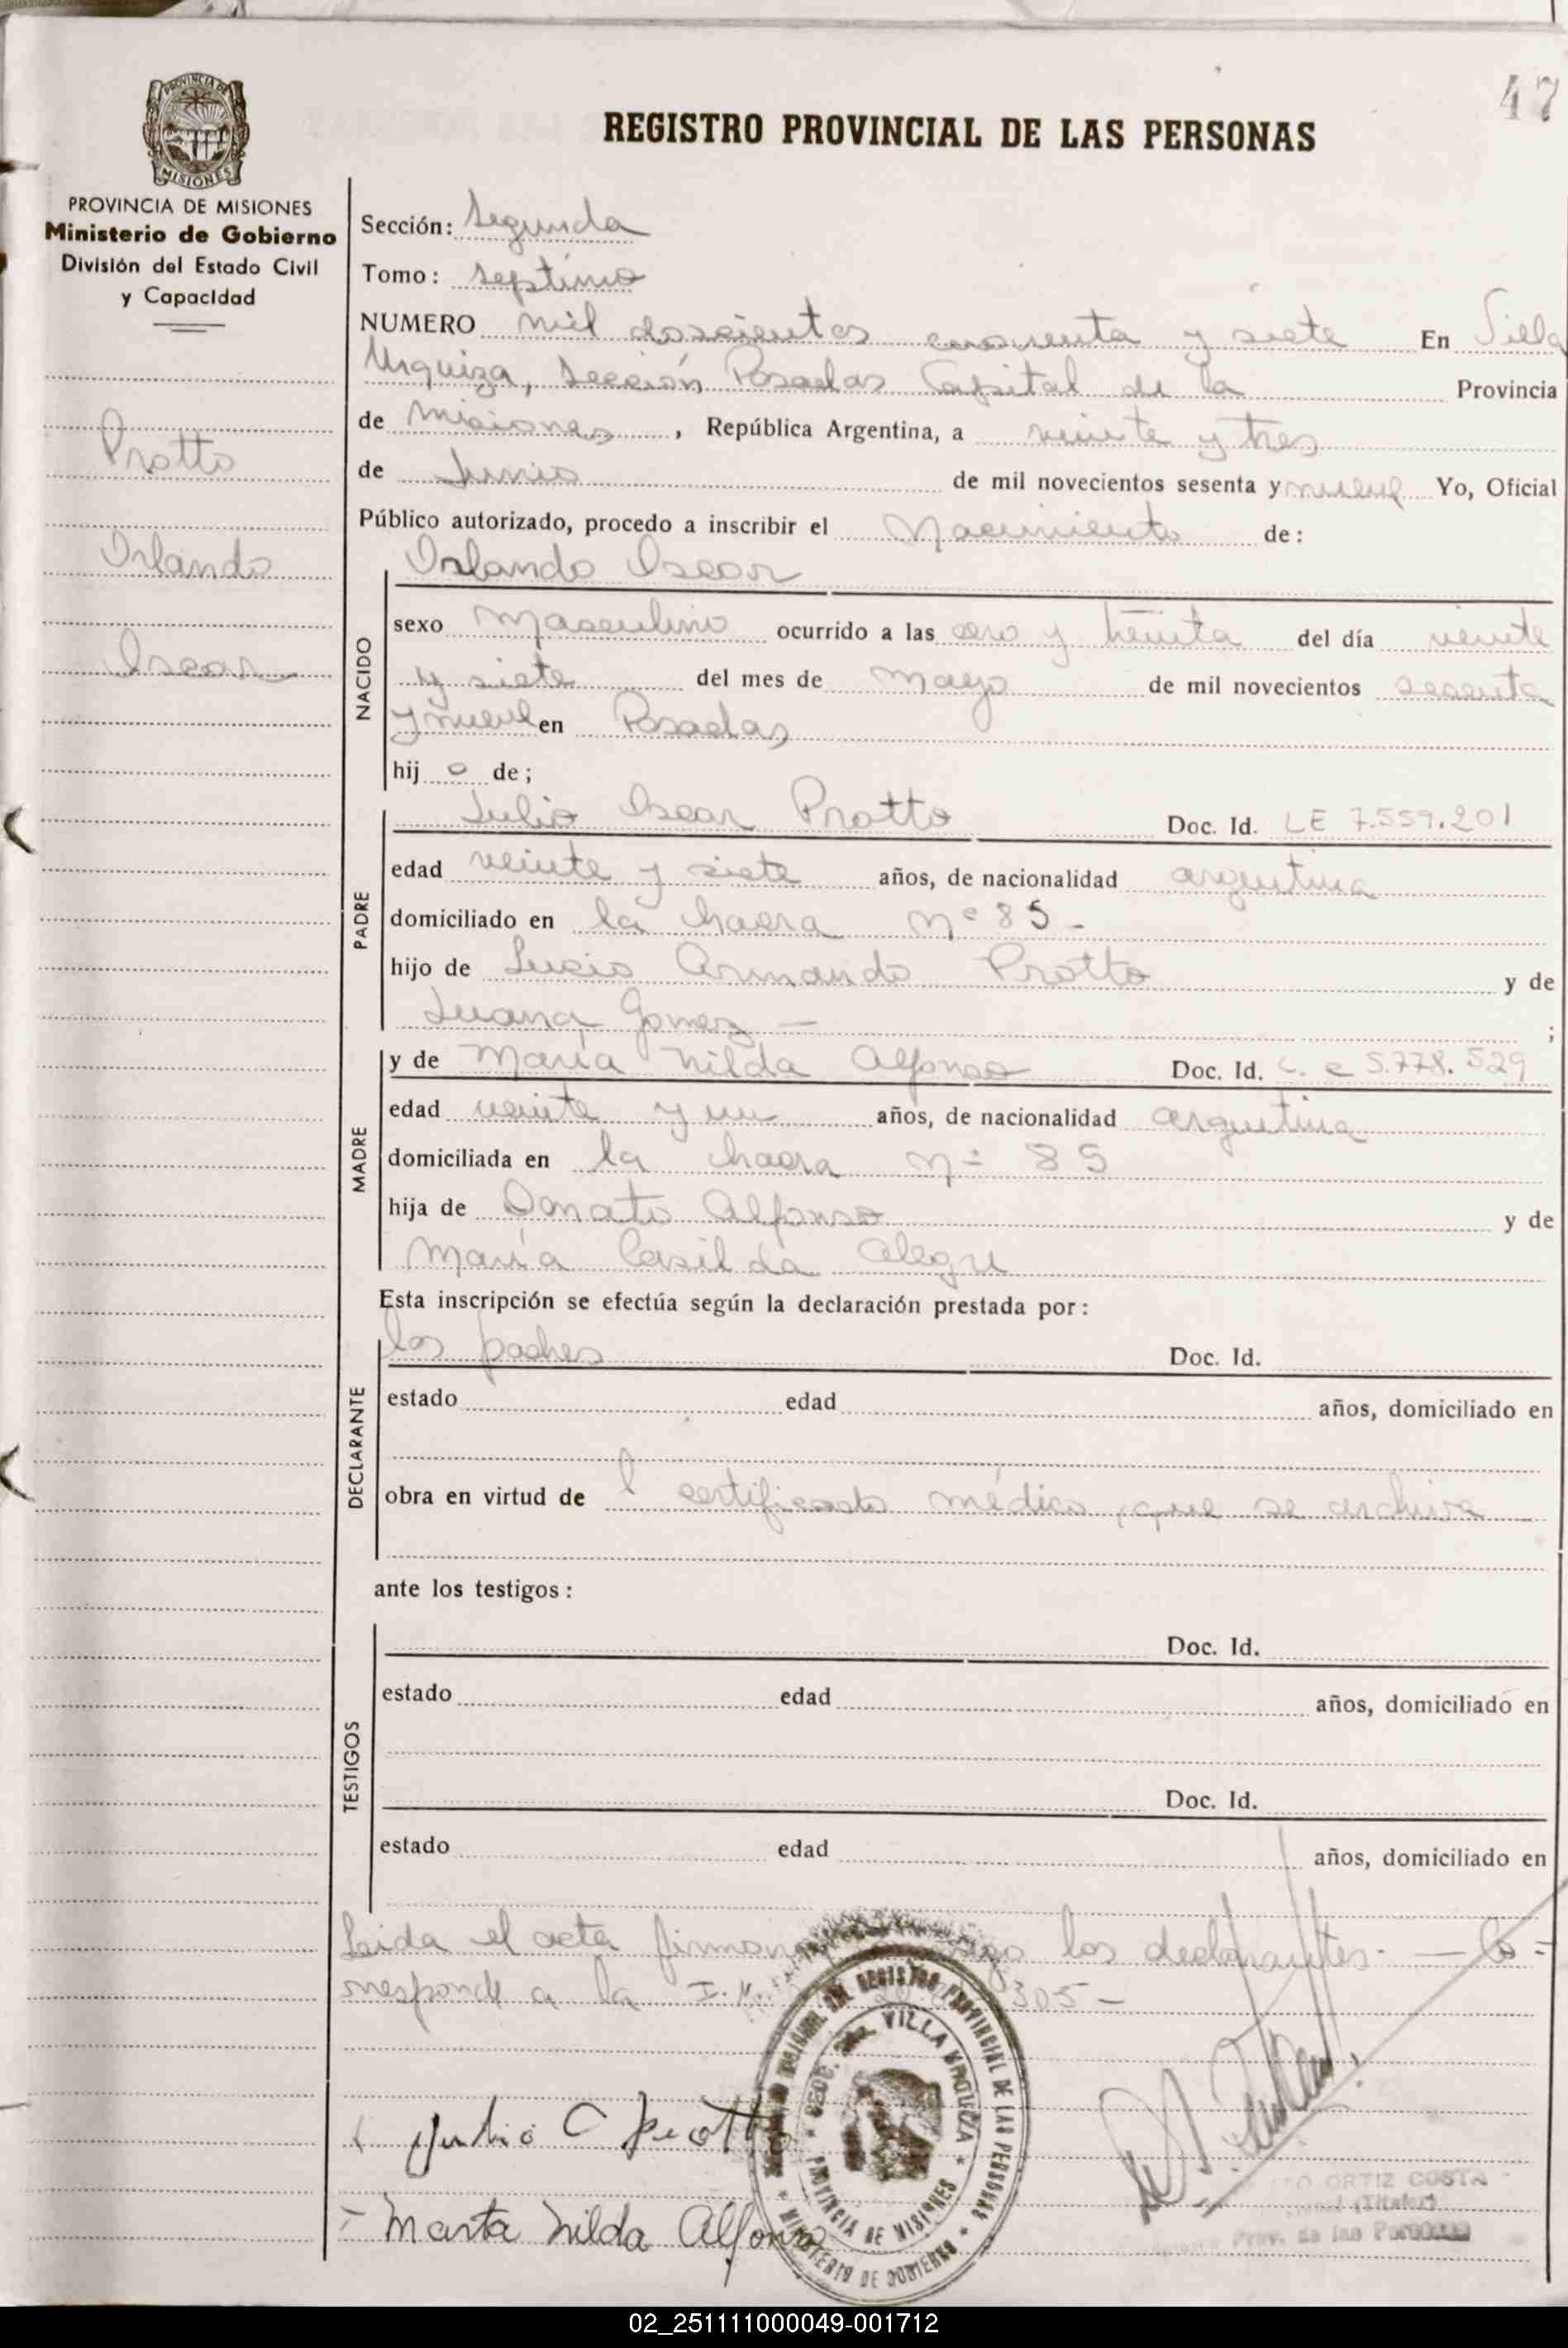 47
PROVINCIA DE
MISIONES
REGISTRO PROVINCIAL DE LAS PERSONAS
PROVINCIA DE MISIONES
Ministerio de Gobierno
División del Estado Civil
y Capacidad
Protto
Orlando
Oscar
Sección: Segunda
Tomo: septimo
NUMERO mil doscientos cuarenta y siete En Villa
Urquiza, Sección Posadas Capital de la Provincia
de Misiones, República Argentina, a veinte y tres
de Junio de mil novecientos sesenta y nueve Yo, Oficial
Público autorizado, procedo a inscribir el Nacimiento de:
Orlando Oscar
NACIDO
sexo Masculino ocurrido a las cero y treinta del día veinte
y siete del mes de mayo de mil novecientos sesenta
y nueve en Posadas
hij o de;
PADRE
Julio Oscar Protto Doc. Id. LE 7.559.201
edad veinte y siete años, de nacionalidad argentina
domiciliado en la chacra nº 85 -
hijo de Lucio Armando Protto y de
Juana Gomez — ;
MADRE
y de María Nilda Alfonso Doc. Id. L. C 5.778.529
edad veinte y un años, de nacionalidad argentina
domiciliada en la chacra nº 85
hija de Donato Alfonso y de
María Casilda Alegre
Esta inscripción se efectúa según la declaración prestada por:
DECLARANTE
los padres Doc. Id.
estado edad años, domiciliado en
obra en virtud de l certificado médico, que se archiva
ante los testigos:
TESTIGOS
Doc. Id.
estado edad años, domiciliado en
Doc. Id.
estado edad años, domiciliado en
Leida el acta firman los declarantes. — Co=
rresponde a la I. M. 305 -
REGISTRO PROVINCIAL DE LAS PERSONAS
SECC. 2da. VILLA URQUIZA
PROVINCIA DE MISIONES
MINISTERIO DE GOBIERNO
Julio C Protto
Marta Nilda Alfonso
ORTIZ COSTA
(Titular)
Prov. de las Personas
02_251111000049-001712